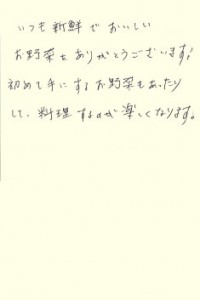 いつも新鮮でおいしい
お野菜をありがとうございます!
初めて手にするお野菜もあったり
して、料理するのが楽しくなります。